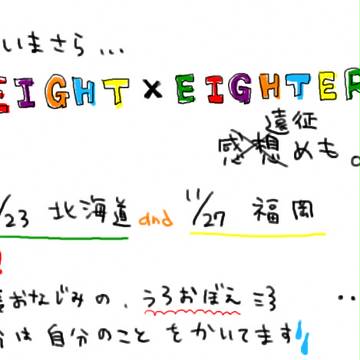 いまさら...
EIGHT × EIGHTER
遠征
感想めも。
/23 北海道 and 11/27 福岡
おなじみの、うろおぼえ
は自分のことをかいてます